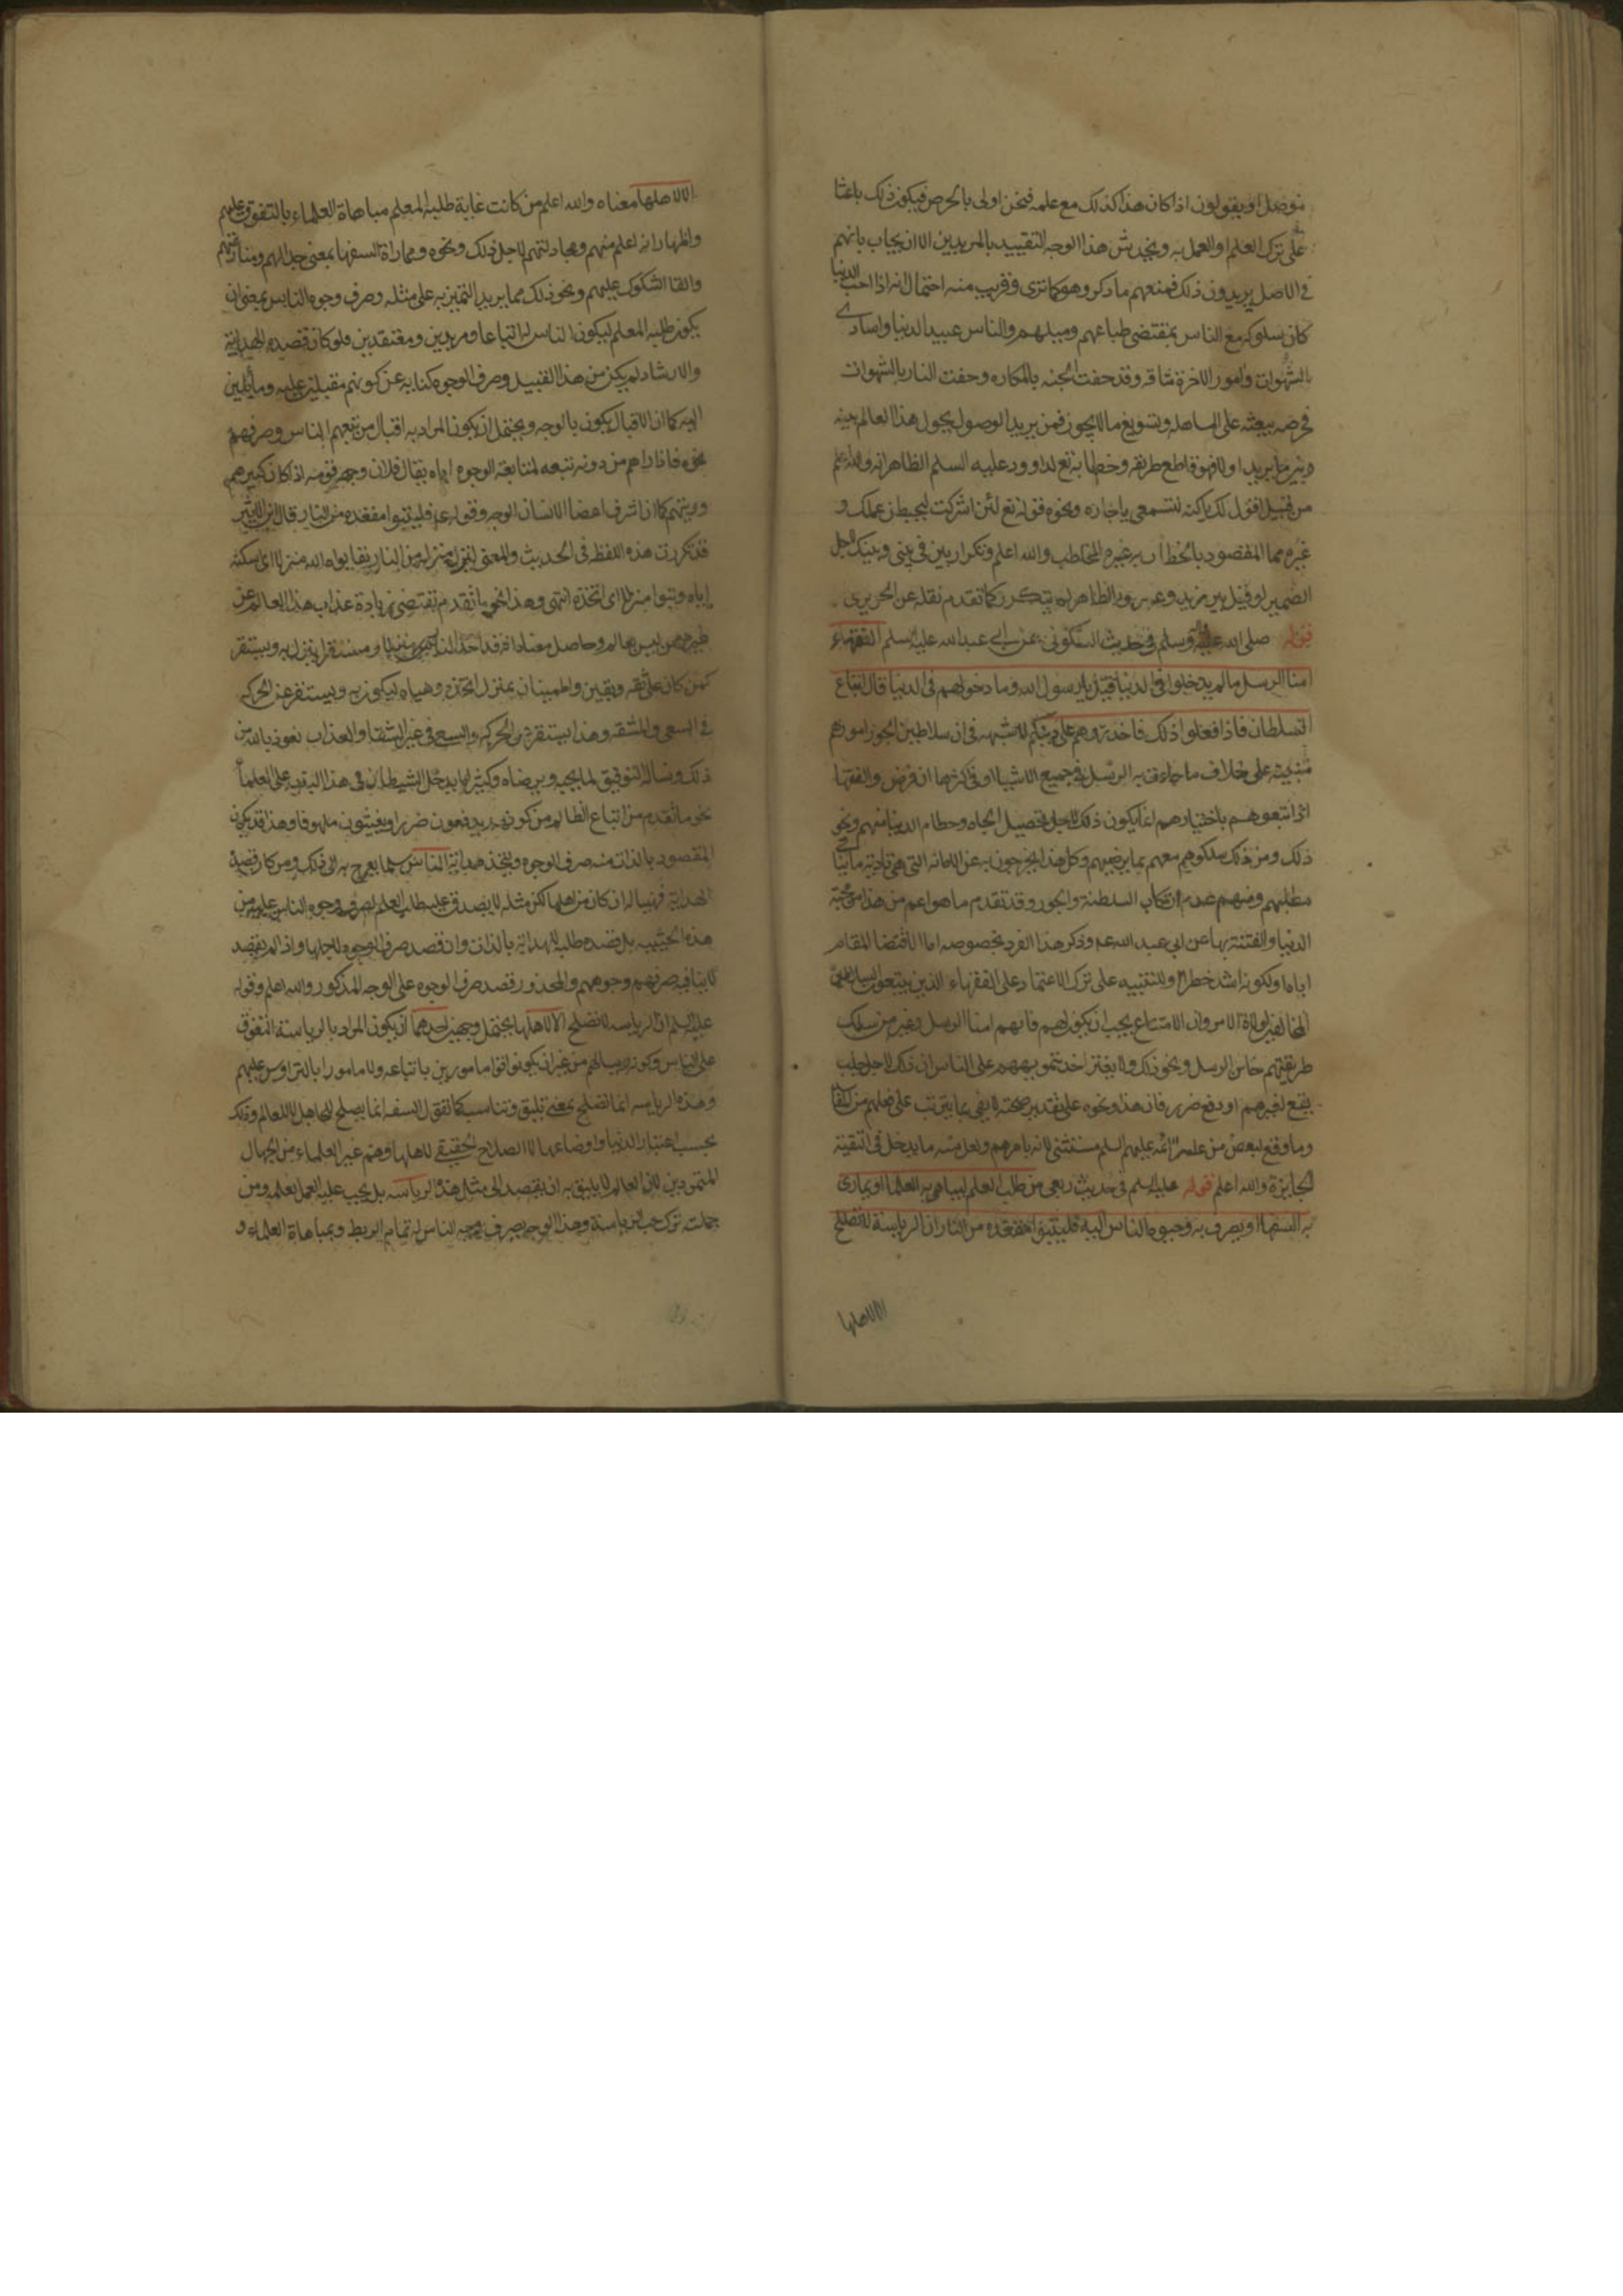 نوصل او يقولون اذا كان هذا كذلك مع علمه فنحن اولى بالحرص فيكون ذلك باعثا
على ترك العلم او العمل به ويخدش هذا الوجه التقييد بالمريدين الا ان يجاب بانهم
في الاصل يريدون ذلك فمنعهم ما ذكر وهو كما ترى وقريب منه احتمال انه اذا احب الدنيا
كان سلوكه مع الناس بمقتضى طباعهم وميلهم والناس عبيد الدنيا واسارى
الشهوات وامور الاخرة شاقه وقد حفت الجنه بالمكاره وحفت النار بالشهوات
فحرصه يبعثه على المساهله وتسويغ ما لا يجوز فمن يريد الوصول يحول هذا العالم بينه
وبين ما يريد اولا فهو قاطع طريقه وخطابه تع لداود عليه السلم الظاهر انه والله اعلم
من قبيل اقول لك يا كنه لتسمعي يا جاره ونحوه قوله تع لئن اشركت ليحبطن عملك و
غيره مما المقصود بالخطاب به غير المخاطب والله اعلم وتكرار بين في بيني وبينك لاجل
الضمير لو قيل بين زيد وعمرو الظاهر انه يتكرر كما تقدم نقله عن الحريري
قوله صلى الله عليه وسلم في حديث السكوني عن ابي عبد الله عليه السلم الفقهاء
امنا الرسل ما لم يدخلوا في الدنيا قيل يا رسول الله وما دخولهم في الدنيا قال اتباع
السلطان فاذا فعلوا ذلك فاحذروهم على دينكم لا شبهه في ان سلاطين الجور امورهم
مبنيه على خلاف ما جاءت به الرسل في جميع الاشيا او في اكثرها ان فرض والفقها
اذا اتبعوهم باختيارهم انما يكون ذلك لاجل تحصيل الجاه وحطام الدنيا منهم ونحو
ذلك ومن ذلك سلكوهم معهم بما يرضيهم وكل هذا يخرجون به عن الامانه التي هي تادية ما ينافي
مطلبهم ومنهم عدم ارتكاب السلطنة والجور وقد تقدم ما هو اعم من هذا من محبة
الدنيا والفتنة بها عن ابي عبد الله عم وذكر هذا الفرد بخصوصه اما لاقتضا المقام
اياه او لكونه اشد خطرا وللتنبيه على ترك الاعتماد على الفقهاء الذين يتبعون السلاطين
المخالفين لولاة الامر وان الامتناع يجب ان يكون لهم فانهم امنا الرسل وغير من سلك
طريقتهم خاين الرسل ونحو ذلك ولا يغتر احد بتمويههم على الناس ان ذلك لاجل جلب
نفع لغيرهم او دفع ضرر فان هذا ونحوه على تقدير صحته لا يفي بما يترتب على فعلهم من
وما وقع لبعض من علماء الائمه عليهم السلم مستثنى لانه بامرهم ولعل منه ما يدخل في التقية
الجايزة والله اعلم قوله عليه السلم في حديث ربعي من طلب العلم ليباهي به العلما او يماري
به السفها او يصرف به وجوه الناس اليه فليتبوا مقعده من النار ان الرياسة لا تصلح
الا لاهلها
الا لاهلها معناه والله اعلم من كانت غاية طلبه العلم مباهاة العلماء بالتفوق عليهم
واظهار انه اعلم منهم ومجادلتهم لاجل ذلك ونحوه ومماراة السفها بمعنى جدالهم ومنازعتهم
والقا الشكوك عليهم ونحو ذلك مما يريد التميز به على مثله وصرف وجوه الناس بمعنى ان
يكون طلبه العلم ليكون الناس له اتباعا ومريدين ومعتقدين فلو كان قصده الهداية
والارشاد لم يكن من هذا القبيل وصرف الوجوه كنايه عن كونهم مقبلين عليه ومايلين
اليه كما ان الاقبال يكون بالوجه ويحتمل ان يكون المراد به اقبال من يتبعهم الناس وصرفهم
نحوه فاذا راهم من دونه تتبعه لمتابعة الوجوه اياه يقال فلان وجه قومه اذا كان كبيرهم
وربيتهم كما ان اشرف اعضا الانسان الوجه وقوله عم فليتبوا مقعده من النار قال ابن الاثير
قد تكررت هذه اللفظه في الحديث والمعنى لينزل منزله من النار يقال بواه الله منزلا اي اسكنه
اياه وتبوا منزلا اي اتخذه انتهى وهذا نحو ما تقدم يقتضي زيادة عذاب هذا العالم عن
غيره ممن ليس بعالم وحاصل معناه انه قد اخذ النار منزلا ومستقرا ينزل به ويستقر
كمن كان على ثقه ويقين واطمينان بمنزل اتخذه وهياه ليكون به ويستقر عن الحركه
في السعي والمشقه وهذا يستقر من الحركه والسعي في غير الشقا والعذاب نعوذ بالله من
ذلك ونساله التوفيق لما يحبه ويرضاه وكثيرا ما يدخل الشيطان في هذا الباب على العلما
نحو ما تقدم من اتباع الظالم من كونهم يدفعون ضررا ويغيثون ملهوفا وهذا قد يكون
المقصود بالذات منه صرف الوجوه ويتخذ هداية الناس سلما يعرج به الى ذلك ومن كان قصده
الهداية فهنيا له ان كان من اهلها لكن مثله لا يصدق عليه طالب العلم لصرف وجوه الناس عليه من
هذه الحيثيه بل قصده طلبه للهداية بالذات وان قصد صرف الوجوه لاجلها واذا لم يقصد
لا ينافيه صرفهم وجوههم والمحذور قصد صرف الوجوه على الوجه المذكور والله اعلم وقوله
عليه السلم ان الرياسه لا تصلح الا لاهلها يحتمل وجهين احدهما ان يكون المراد بالرياسة التفوق
على الناس وكونه رييسا لهم من غير ان يكونوا مامورين باتباعه ولا مامورا بالتراوس عليهم
وهذه الرياسه انما تصلح بمعنى تليق وتناسب كما تقول السفه انما يصلح للجاهل لا للعالم وذلك
بحسب اعتبار الدنيا واوضاعها لا الصلاح الحقيقي لاهلها وهم غير العلماء من الجهال
المتمردين لان العالم لا يليق به ان يقصد الى مثل هذه الرياسه بل يجب عليه العمل بعلمه ومن
جملته ترك حب الرياسة وهذا الوجه يصرف وجه الناس له تمام الربط وبمباهاة العلماء و